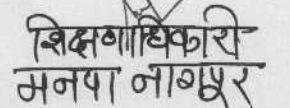 शिक्षणाधिकारी
मनपा नागपूर